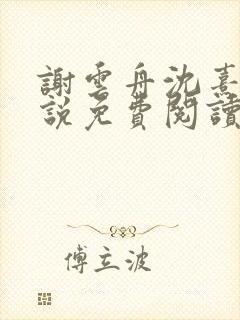 謝雲舟沈熹
說免費閱讀
傅立波